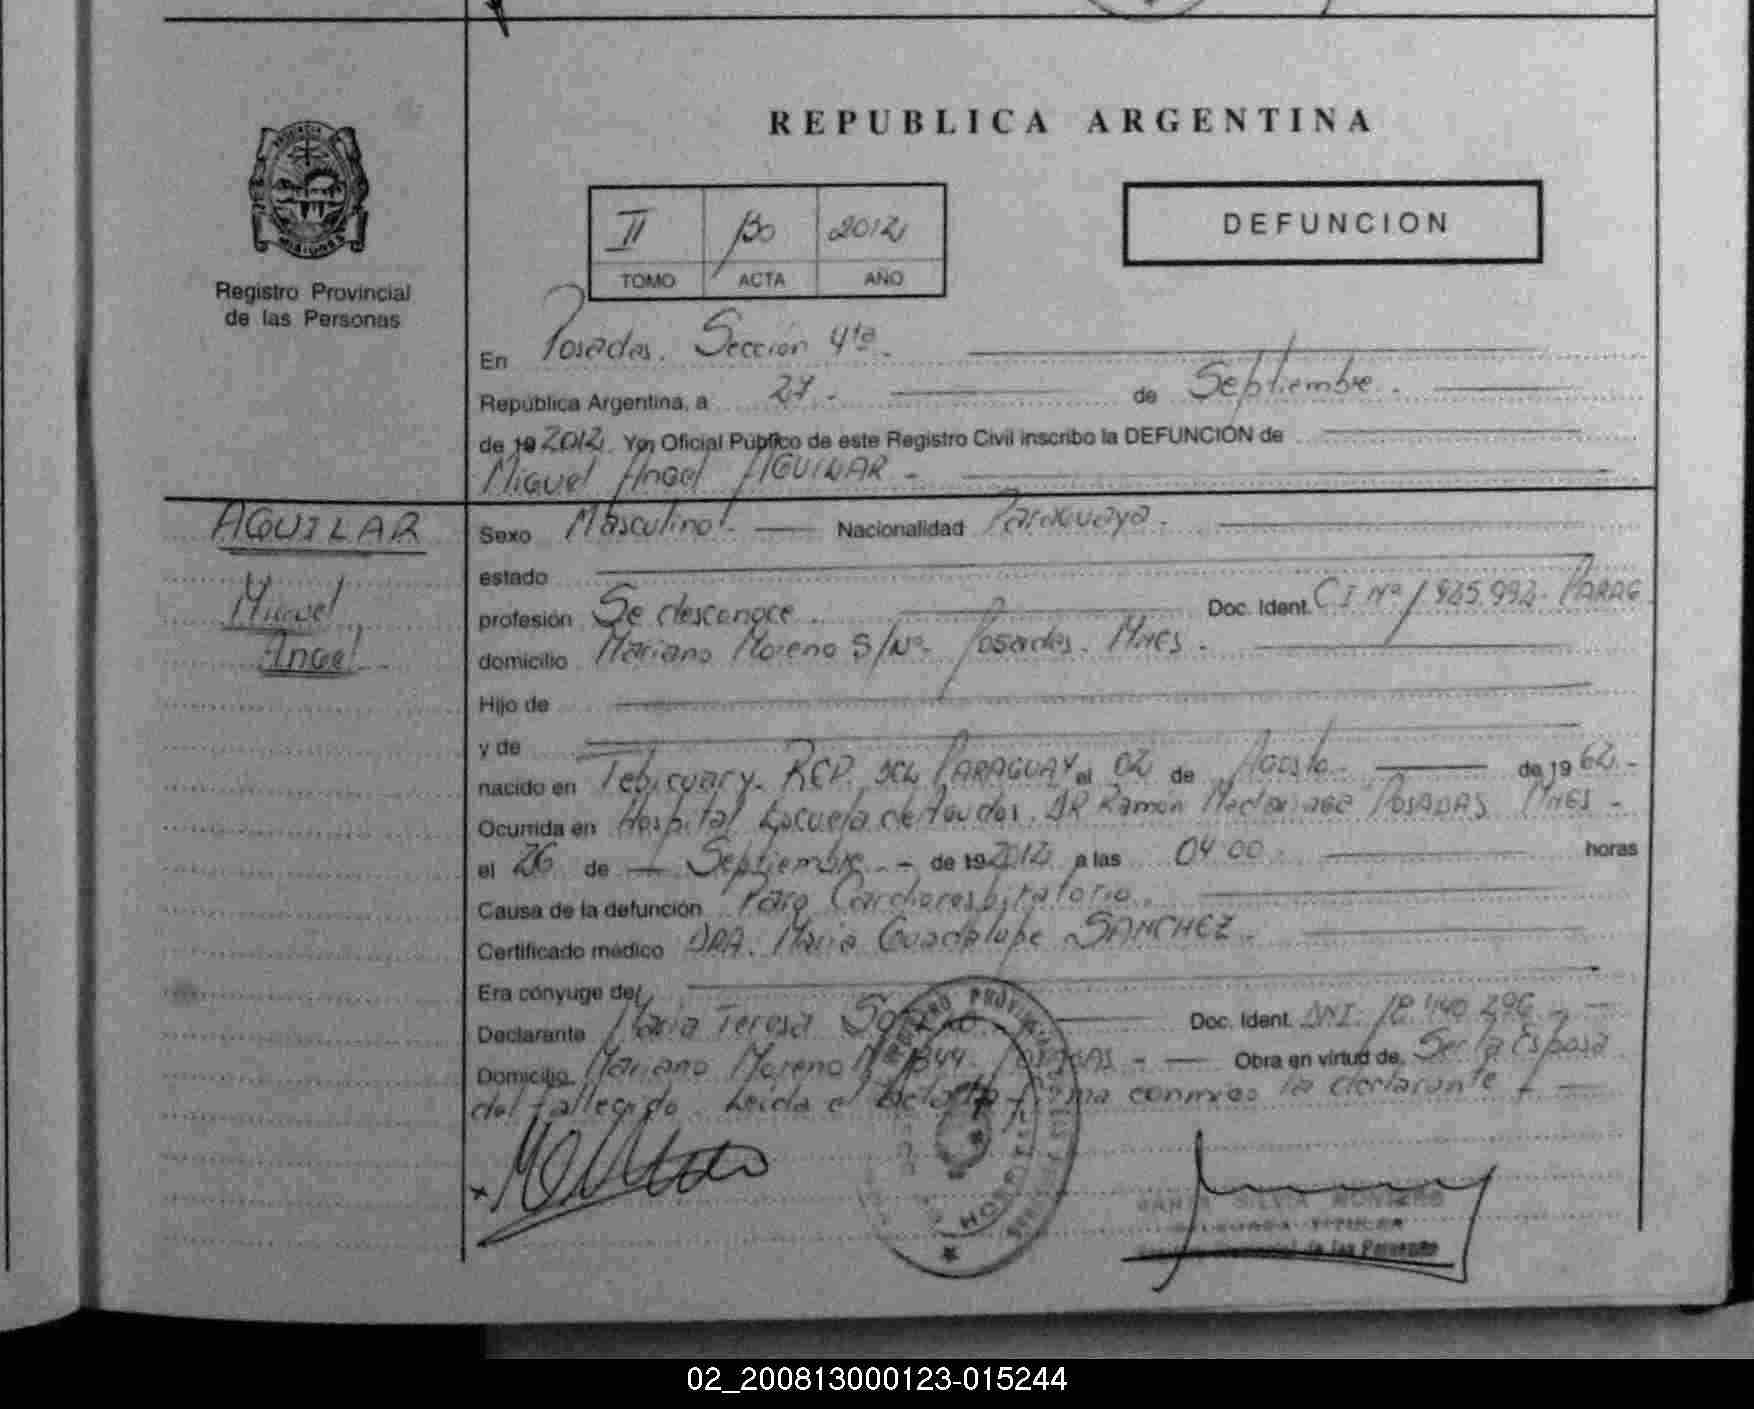 REPUBLICA ARGENTINA
DEFUNCION
II 2012
TOMO ACTA AÑO
Registro Provincial
de las Personas
En Posadas. Sección 4ta.
República Argentina, a 27. de Septiembre.
de 19 2012. Yo, Oficial Público de este Registro Civil inscribo la DEFUNCION de
Miguel Angel AGUILAR -
AGUILAR
Miguel
Angel
Sexo Masculino. - Nacionalidad Paraguaya.
estado
profesión Se desconoce. Doc. Ident. CI Nº 1 925.992. PARAG
domicilio Mariano Moreno S/Nº. Posadas. Mnes.
Hijo de
y de
nacido en Tebicuary. REP. DEL PARAGUAY el 02 de Agosto. de 19 62.-
Ocurrida en Hospital Escuela de Agudos. DR Ramón Madariaga POSADAS MNES -
el 26 de Septiembre. - de 19 2012 a las 04 00. horas
Causa de la defunción Paro Cardiorespiratorio.
Certificado médico DRA. Maria Guadalupe SANCHEZ.
Era cónyuge de
Declarante Maria Teresa Doc. Ident. DNI. 18.440.296 -
Domicilio Mariano Moreno Nº 1344. POSADAS - Obra en virtud de Ser la Esposa
del fallecido. Leida el acta firma conmigo la declarante -
SILVIA MONTERO
DELEGADA TITULAR
de las Personas
02_200813000123-015244